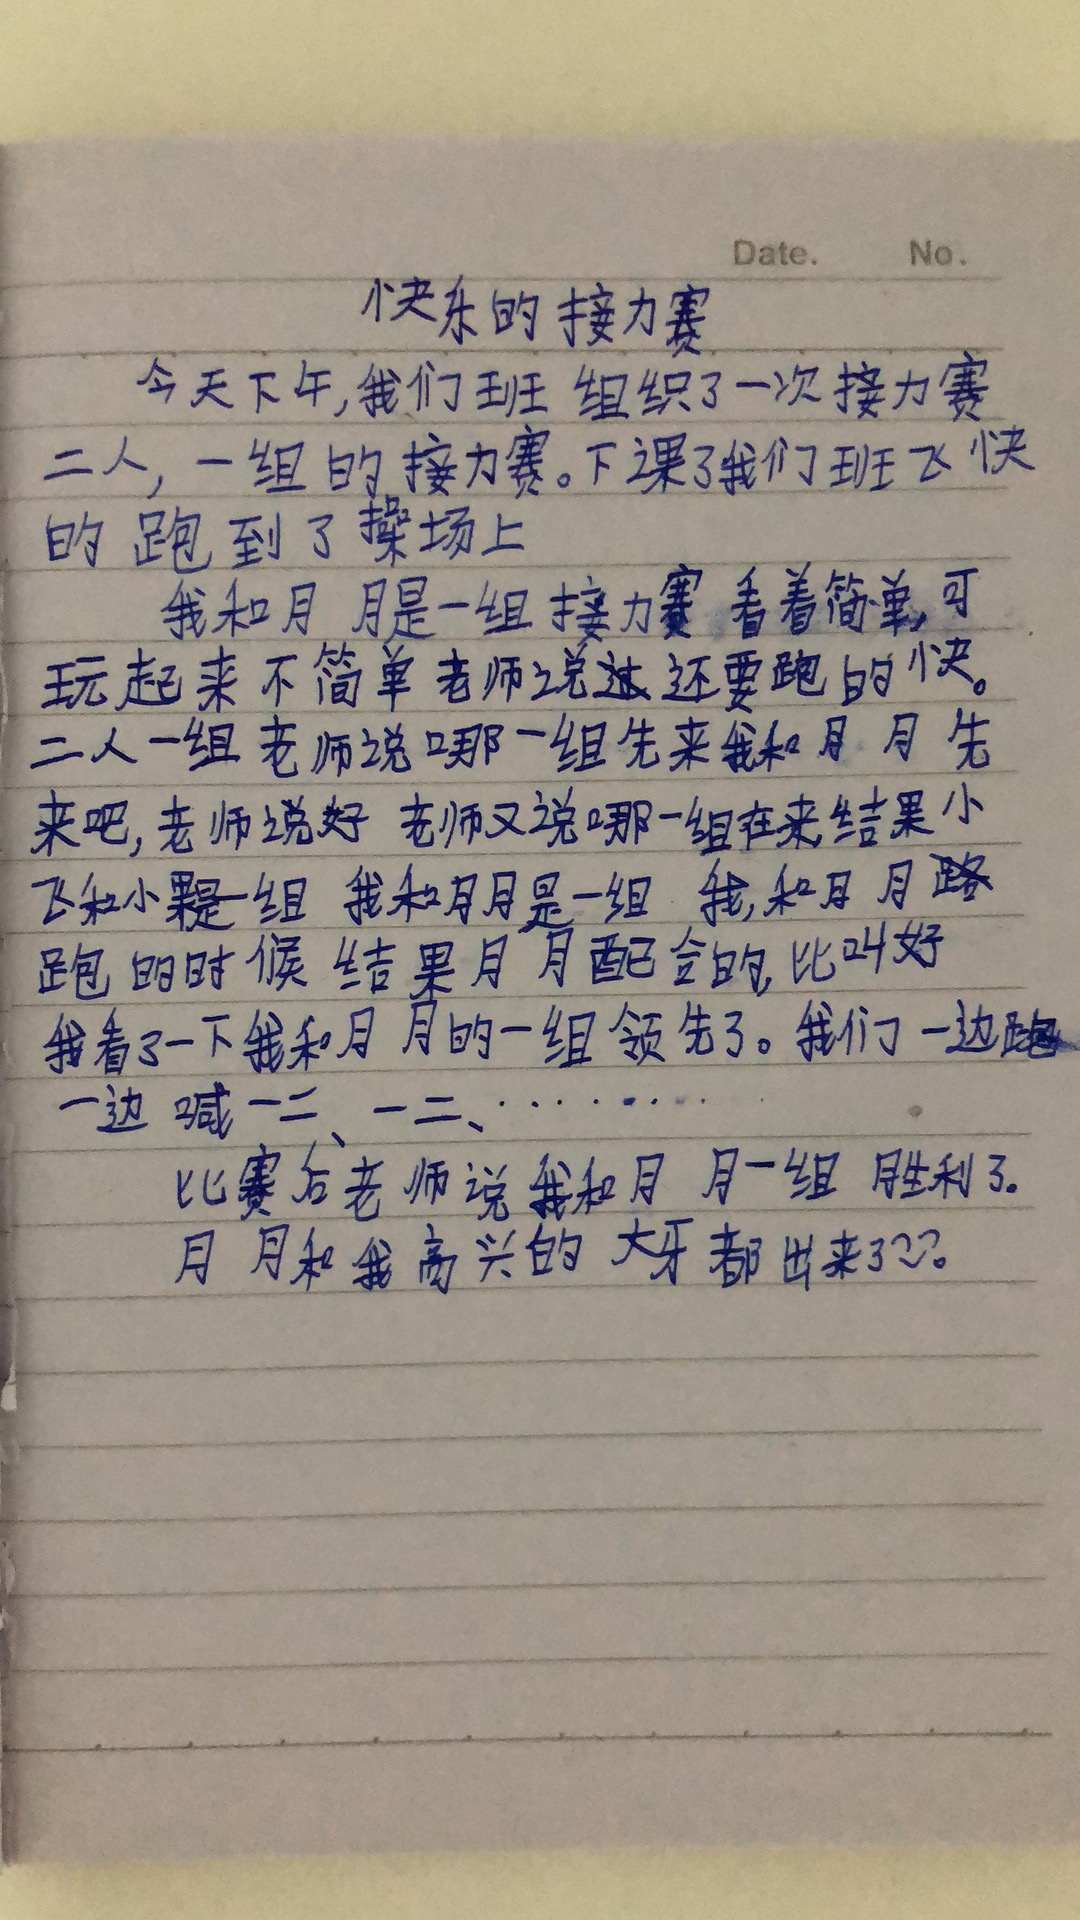 Date. No.
快乐的接力赛
今天下午,我们班组织了一次接力赛
二人,一组的接力赛。下课了我们班飞快
的跑到了操场上
我和月月是一组接力赛看着简单,可
玩起来不简单老师说还要跑的快。
二人一组老师说哪一组先来我和月月先
来吧,老师说好老师又说哪一组在来结果小
飞和小果是一组 我和月月是一组 我,和月月
跑的时候结果月月配合的,比叫好
我看了一下我和月月的一组领先了。我们一边跑
一边喊一二、一二、………
比赛后老师说我和月月一组胜利了。
月月和我高兴的大牙都出来了~~。